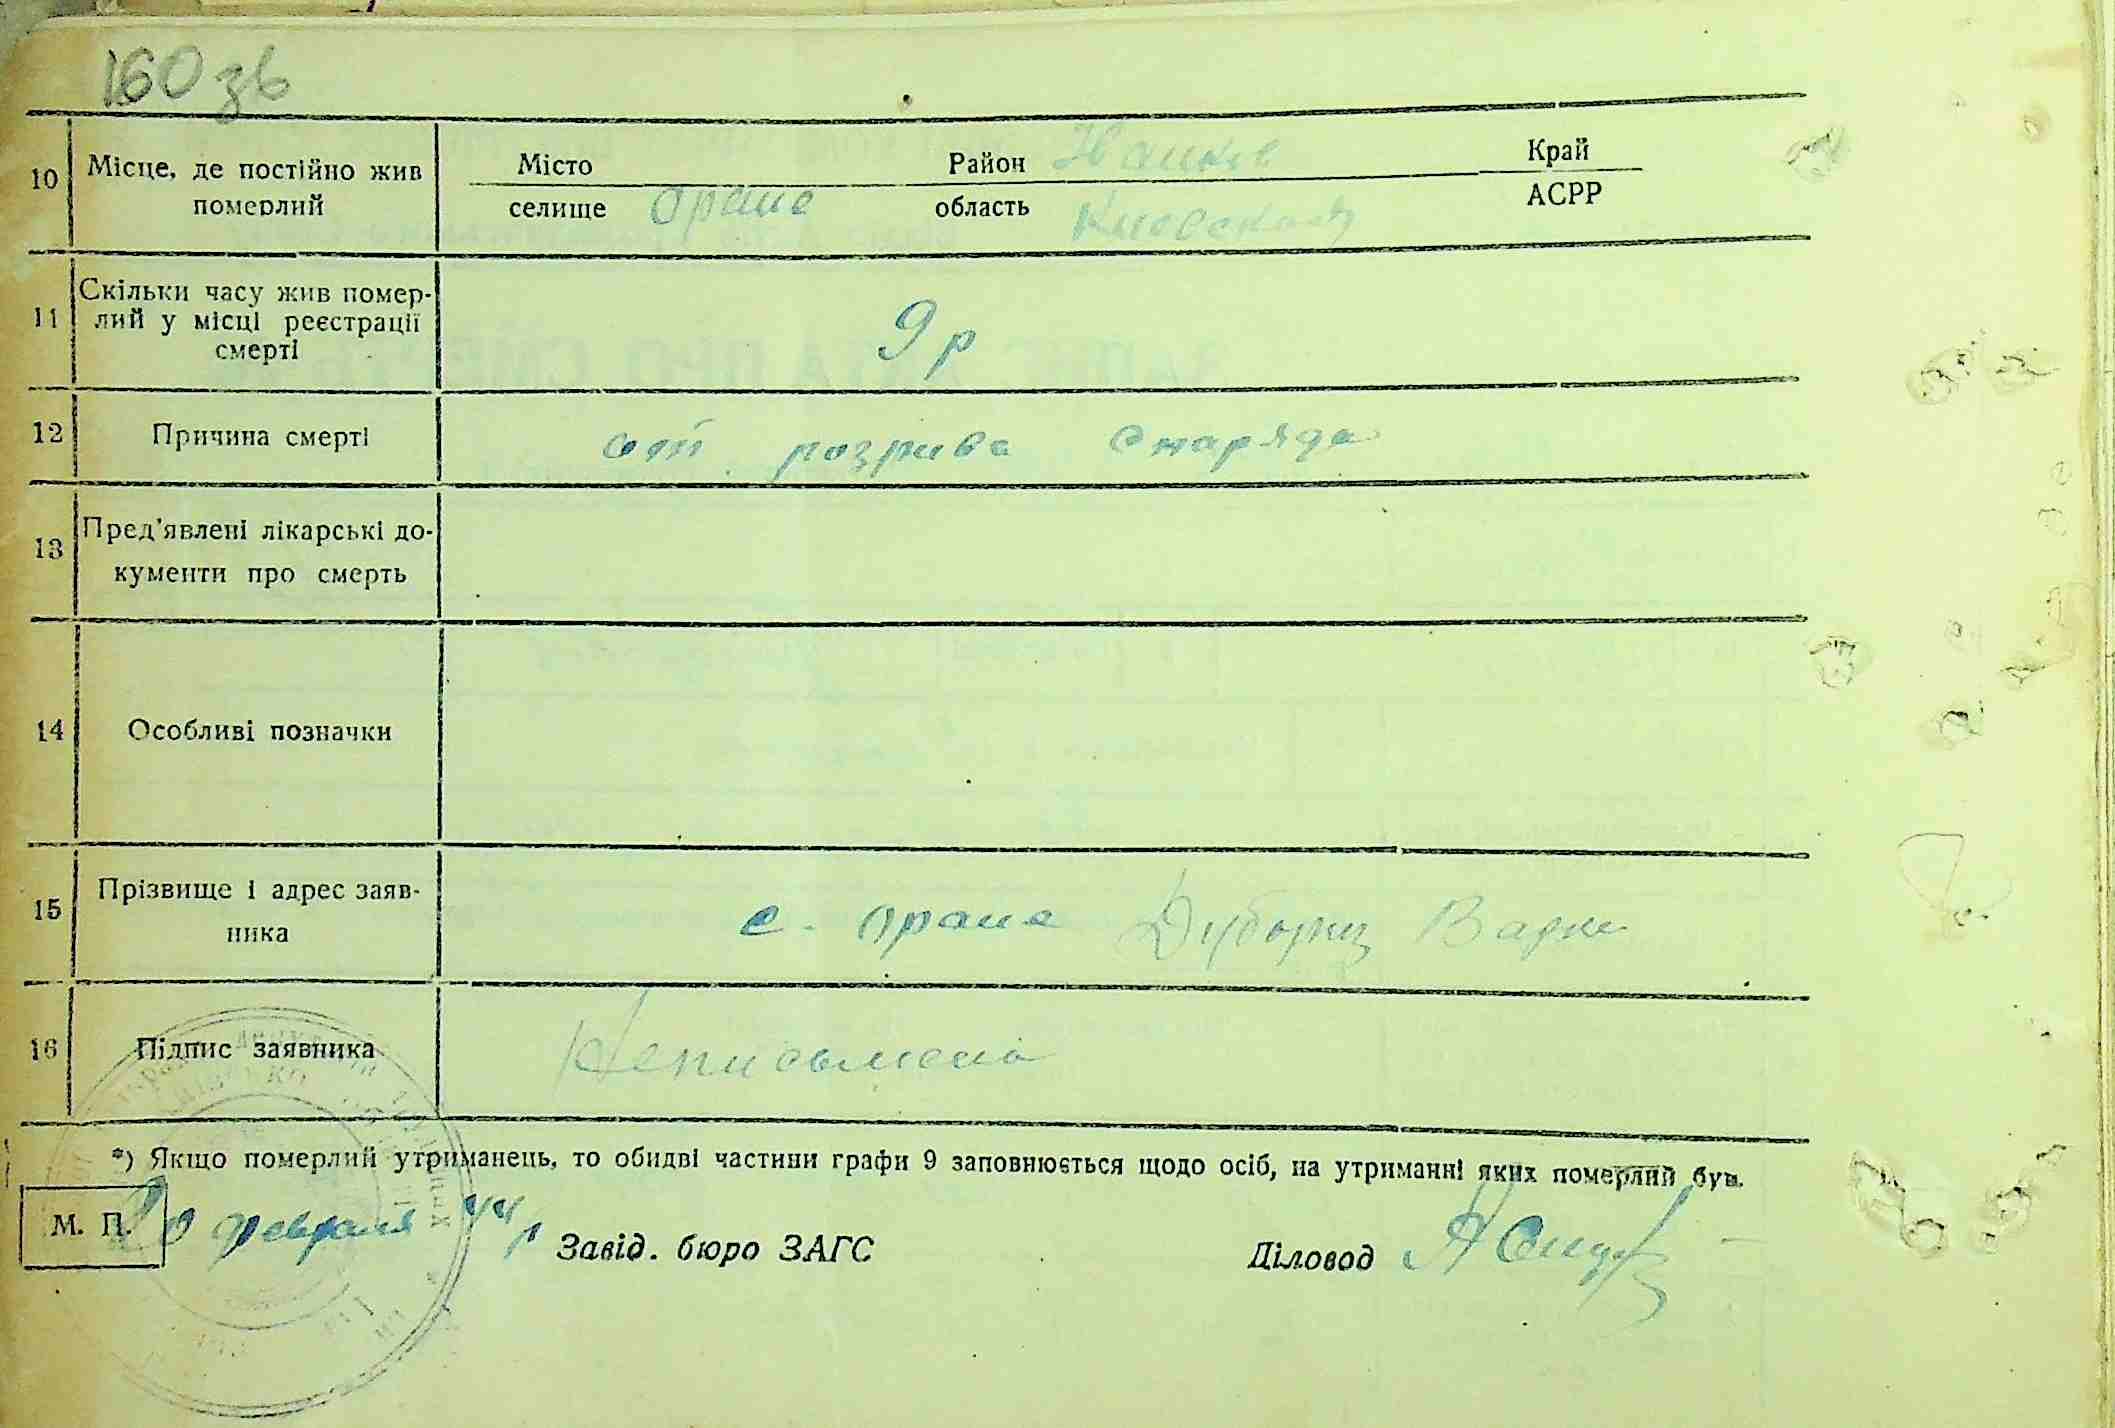 160 зв
10 Місце, де постійно жив померлий
Місто Район Край
селище Оране область Киевской АСРР
11 Скільки часу жив помер-
лий у місці реєстрації
смерті
9 р
12 Причина смерті от розрива снаряда
13 Пред'явлені лікарські до-
кументи про смерть
14 Особливі позначки
15 Прізвище і адрес заяв-
ника
с. Оране Варка
16 Підпис заявника Неписьмена
*) Якщо померлий утриманець, то обидві частини графи 9 заповнюється щодо осіб, на утриманні яких померлий був.
М. П. 20 февраля 44 р Завід. бюро ЗАГС Діловод